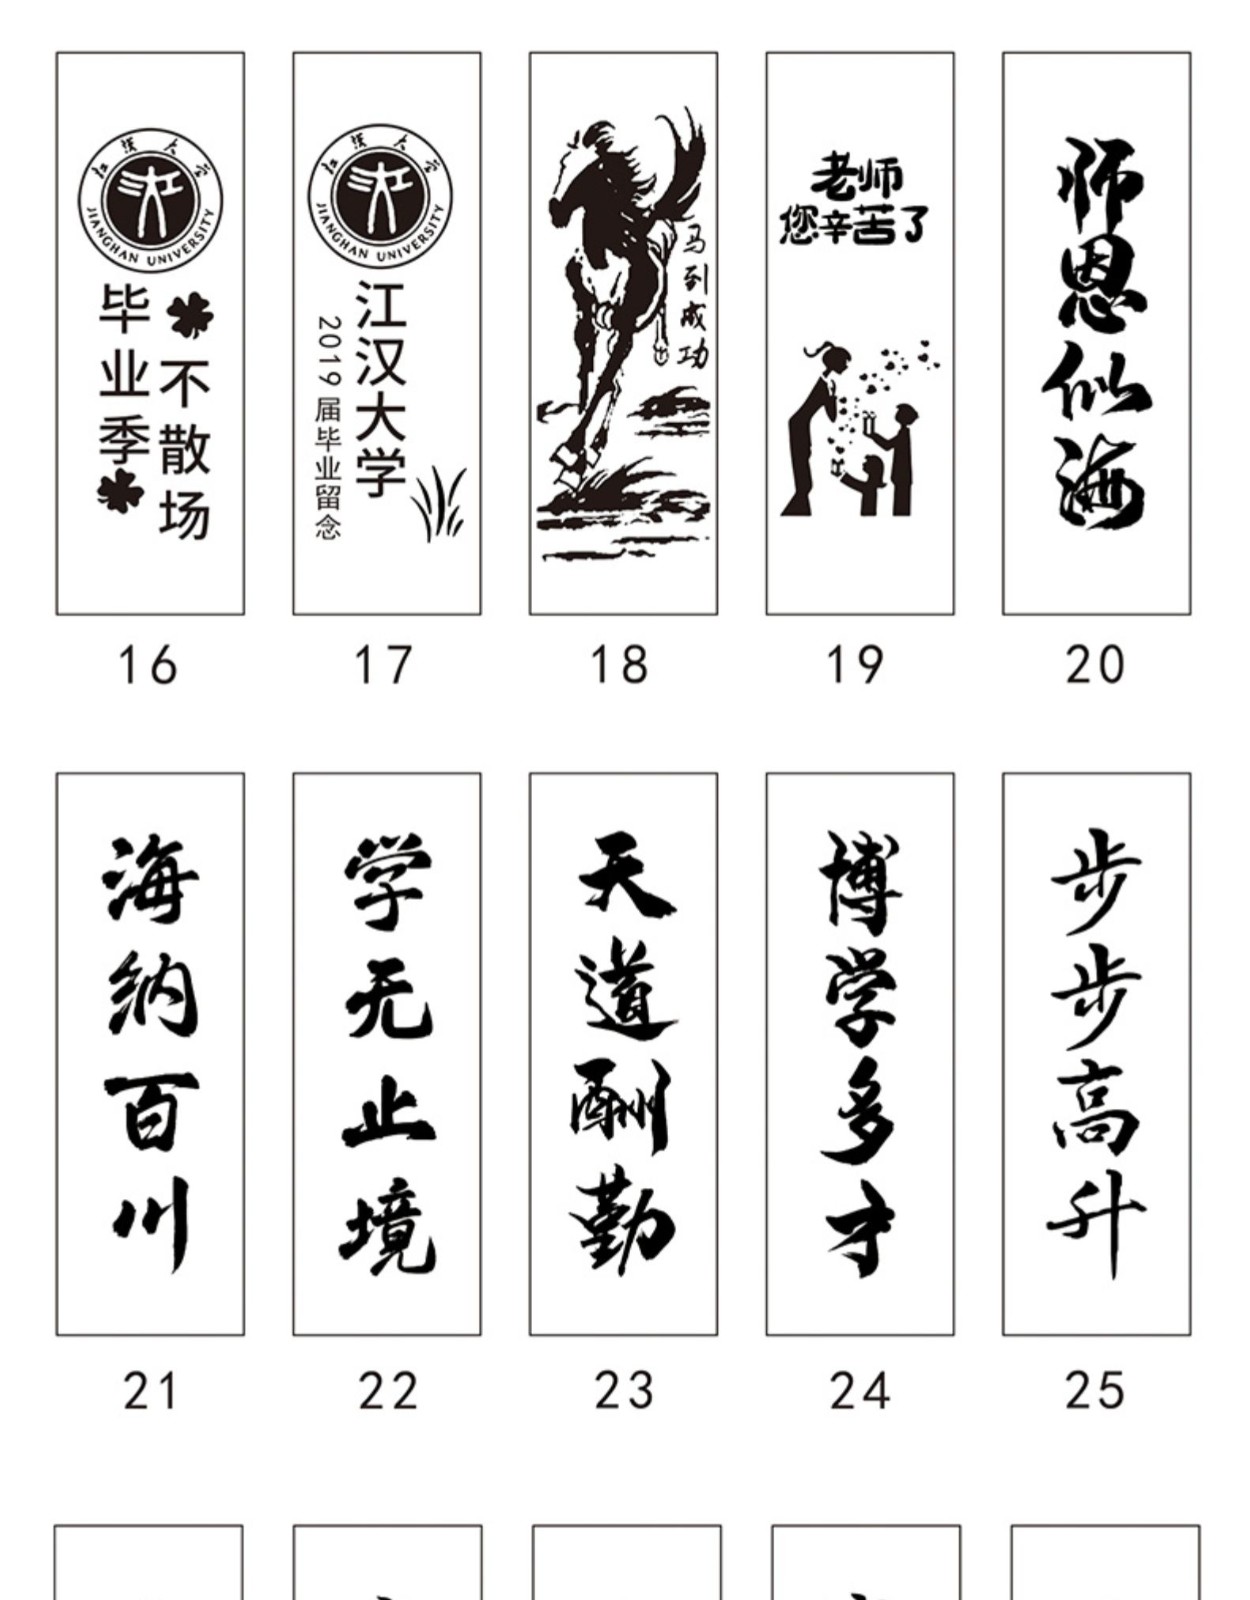 江汉大学
JIANGHAN UNIVERSITY
毕业季
不散场
16
江汉大学
JIANGHAN UNIVERSITY
江汉大学
2019届毕业留念
17
马到成功
18
老师
您辛苦了
19
师恩似海
20
海纳百川
21
学无止境
22
天道酬勤
23
博学多才
24
步步高升
25